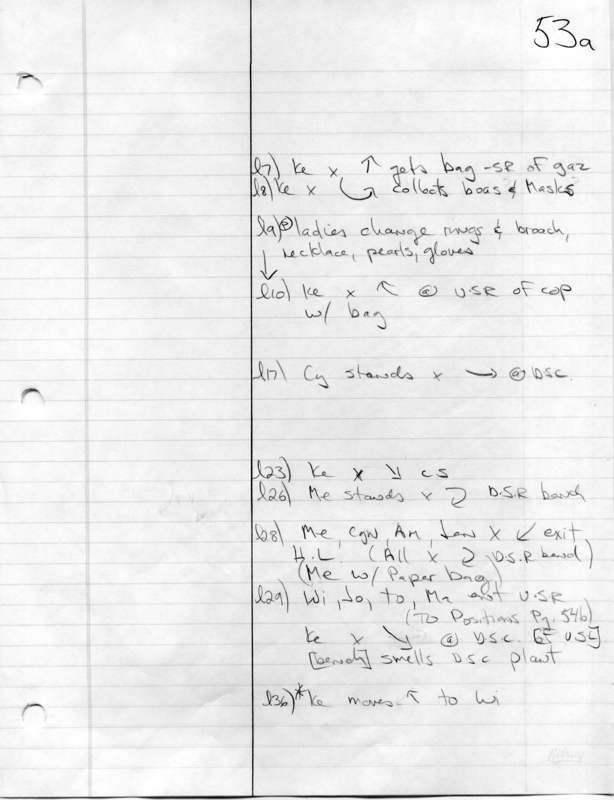 53a
l7) Ke x ↑ gets bag -SR of gaz
l8) Ke x ⤷ collects boas & Masks
l9) @ ladies change rings & broach,
necklace, pearls, gloves
l10) Ke x ↖ @ U.SR of cop
w/ bag
l17) Cy stands x → @ DSC.
l23) Ke x ↘ CS
l26) Me stands x D.S.R bench
l28) Me, Cyn, Am, x ↙ exit
H.L. (All x D.S.R bench)
(Me w/ Paper bag)
l29) Wi, Jo, to, Ma exit U.SR
(To Positions Pg. 54b)
Ke x ↘ @ DSC. [of USC]
[bench] smells DSC plant
l36) * Ke moves ↑ to Wi
Hilroy